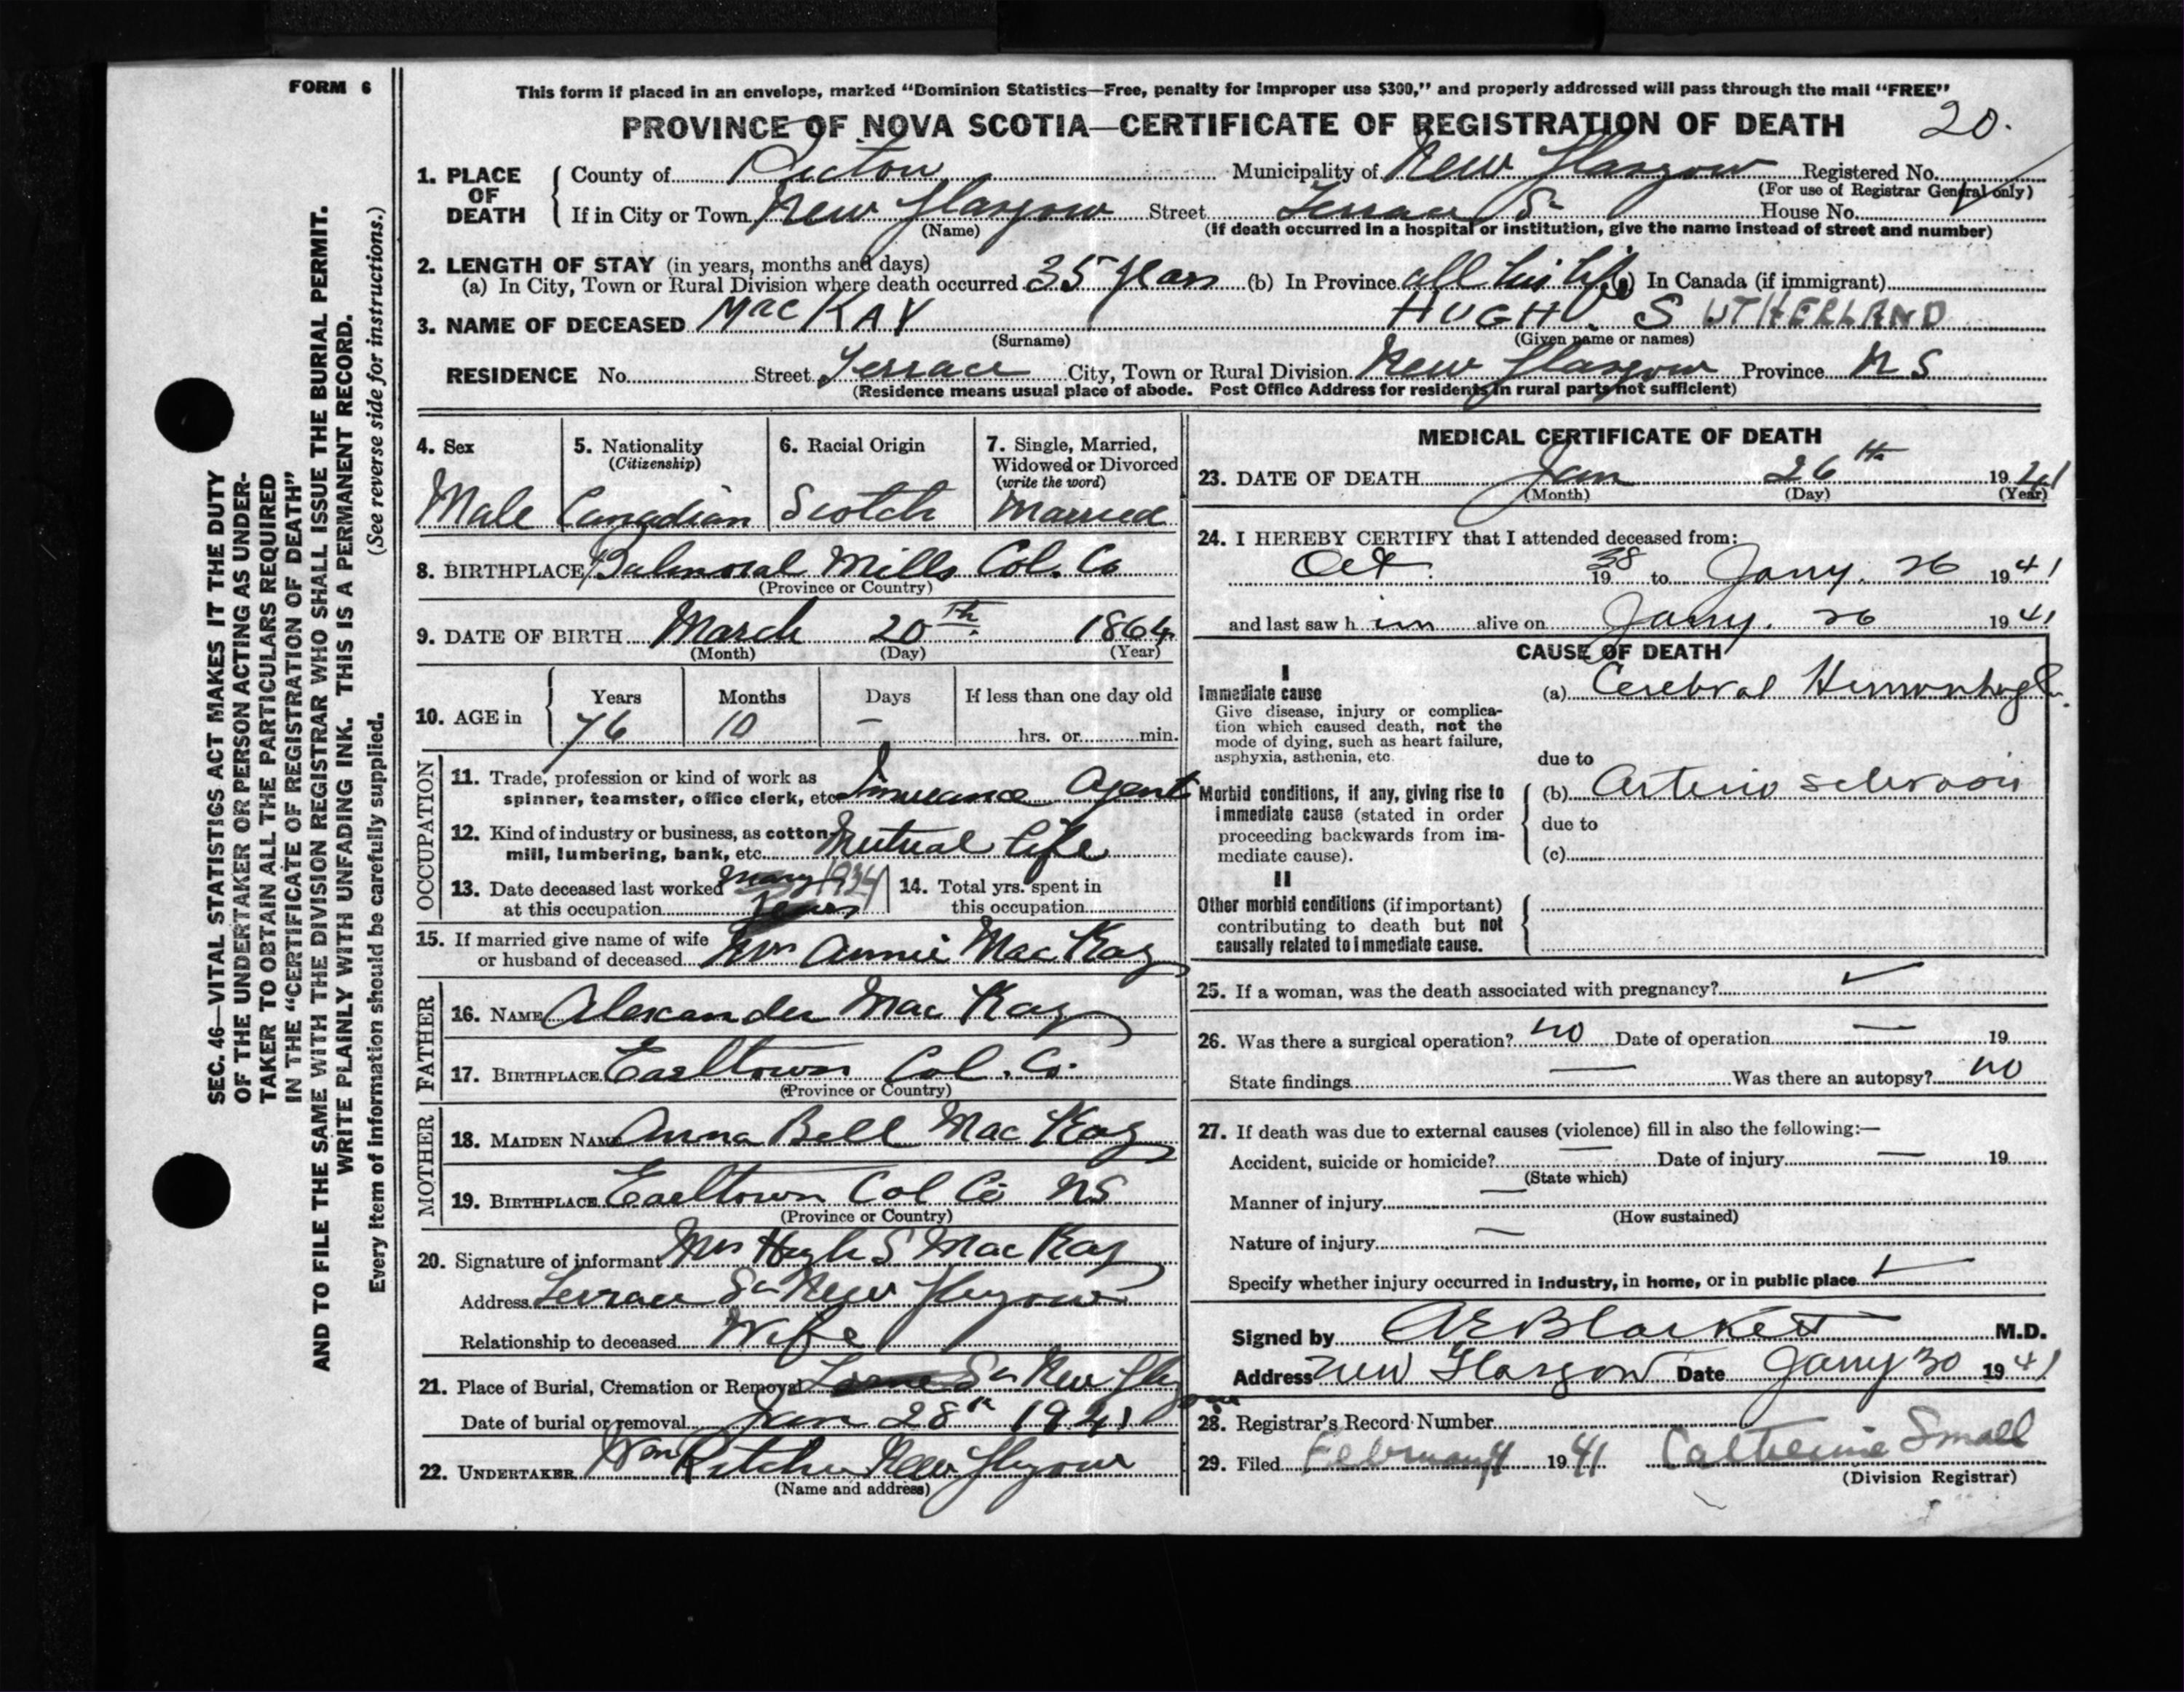 FORM 6
This form if placed in an envelope, marked “Dominion Statistics—Free, penalty for improper use $300,” and properly addressed will pass through the mail “FREE”
PROVINCE OF NOVA SCOTIA—CERTIFICATE OF REGISTRATION OF DEATH 20.
1. PLACE OF DEATH County of Pictou Municipality of New Glasgow Registered No.
(For use of Registrar General only)
If in City or Town New Glasgow Street Terrace St House No.
(Name) (If death occurred in a hospital or institution, give the name instead of street and number)
2. LENGTH OF STAY (in years, months and days)
(a) In City, Town or Rural Division where death occurred 35 years (b) In Province all his life (c) In Canada (if immigrant)
3. NAME OF DECEASED MacKAY HUGH SUTHERLAND
(Surname) (Given name or names)
RESIDENCE No. Street Terrace City, Town or Rural Division New Glasgow Province N S
(Residence means usual place of abode. Post Office Address for residents in rural parts not sufficient)
4. Sex 5. Nationality 6. Racial Origin 7. Single, Married,
(Citizenship) Widowed or Divorced
(write the word)
Male Canadian Scotch Married
8. BIRTHPLACE Balmoral Mills Col. Co
(Province or Country)
9. DATE OF BIRTH March 20th 1864
(Month) (Day) (Year)
10. AGE in Years Months Days If less than one day old
76 10 — hrs. or min.
OCCUPATION
11. Trade, profession or kind of work as
spinner, teamster, office clerk, etc. Insurance Agent
12. Kind of industry or business, as cotton-
mill, lumbering, bank, etc. Mutual Life
13. Date deceased last worked 1934 14. Total yrs. spent in
at this occupation this occupation
15. If married give name of wife
or husband of deceased Mrs Annie MacKay
FATHER
16. NAME Alexander MacKay
17. BIRTHPLACE Earltown Col. Co.
(Province or Country)
MOTHER
18. MAIDEN NAME Anna Bell MacKay
19. BIRTHPLACE Earltown Col Co NS
(Province or Country)
20. Signature of informant Mrs Hugh S MacKay
Address Terrace St New Glasgow
Relationship to deceased Wife
21. Place of Burial, Cremation or Removal New Glasgow
Date of burial or removal Jan 28th 1941
22. UNDERTAKER Wm New Glasgow
(Name and address)
MEDICAL CERTIFICATE OF DEATH
23. DATE OF DEATH Jan 26th 1941
(Month) (Day) (Year)
24. I HEREBY CERTIFY that I attended deceased from:
Oct. 1938 to Jany. 26 1941
and last saw him alive on Jany. 26 1941
CAUSE OF DEATH
I
Immediate cause (a) Cerebral Hemorrhage
Give disease, injury or complica-
tion which caused death, not the
mode of dying, such as heart failure,
asphyxia, asthenia, etc. due to
Morbid conditions, if any, giving rise to (b) Arterio sclerosis
immediate cause (stated in order due to
proceeding backwards from im-
mediate cause). (c)
II
Other morbid conditions (if important)
contributing to death but not
causally related to immediate cause.
25. If a woman, was the death associated with pregnancy?
26. Was there a surgical operation? no Date of operation — 19
State findings — Was there an autopsy? no
27. If death was due to external causes (violence) fill in also the following:—
Accident, suicide or homicide? — Date of injury — 19
(State which)
Manner of injury —
(How sustained)
Nature of injury —
Specify whether injury occurred in industry, in home, or in public place
Signed by A E Blackett M.D.
Address New Glasgow Date Jany 30 1941
28. Registrar's Record Number
29. Filed February 1941 Catherine Small
(Division Registrar)
SEC. 46—VITAL STATISTICS ACT MAKES IT THE DUTY
OF THE UNDERTAKER OR PERSON ACTING AS UNDER-
TAKER TO OBTAIN ALL THE PARTICULARS REQUIRED
IN THE “CERTIFICATE OF REGISTRATION OF DEATH”
AND TO FILE THE SAME WITH THE DIVISION REGISTRAR WHO SHALL ISSUE THE BURIAL PERMIT.
WRITE PLAINLY WITH UNFADING INK. THIS IS A PERMANENT RECORD.
Every item of information should be carefully supplied. (See reverse side for instructions.)